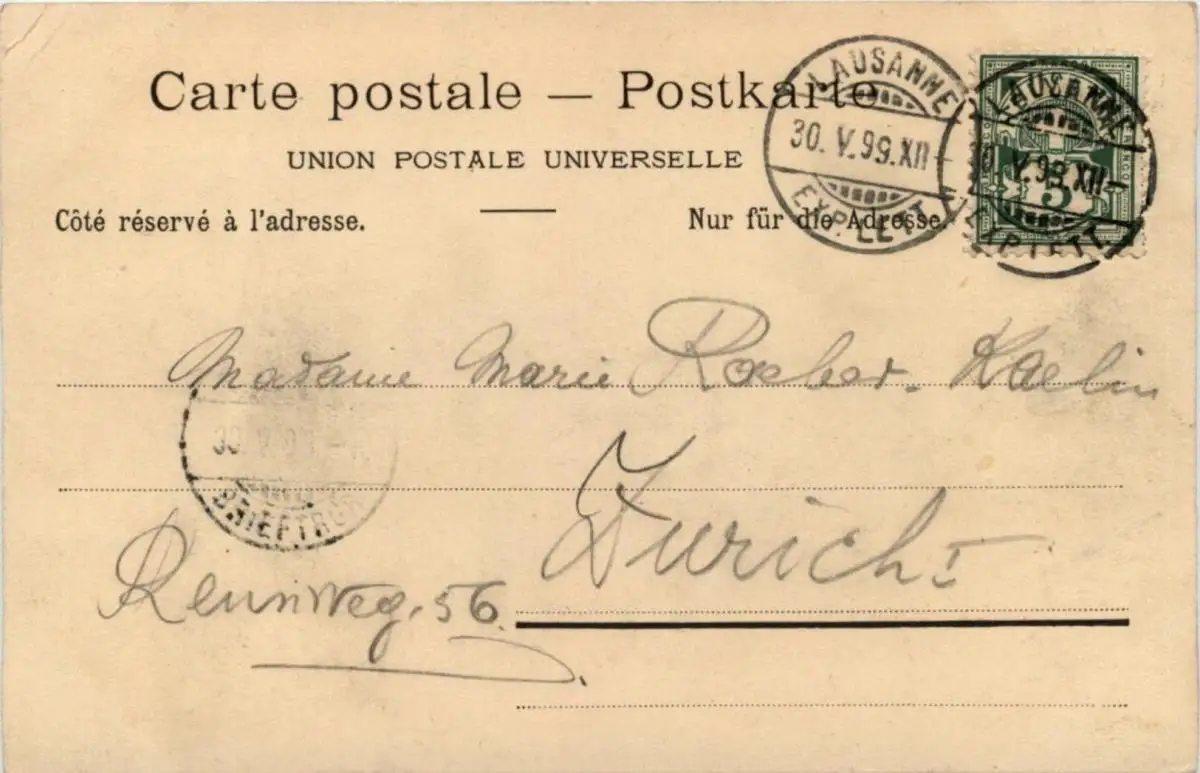 Carte postale — Postkarte
UNION POSTALE UNIVERSELLE
Côté réservé à l'adresse.
Nur für die Adresse.
LAUSANNE
30. V. 99. XII—
EXP. LETT.
LAUSANNE
30. V. 99. XII—
EXP. LETT.
5
Madame Marie Roeber-Kaelin
BRIEFTR
Zurich I
Rennweg. 56.